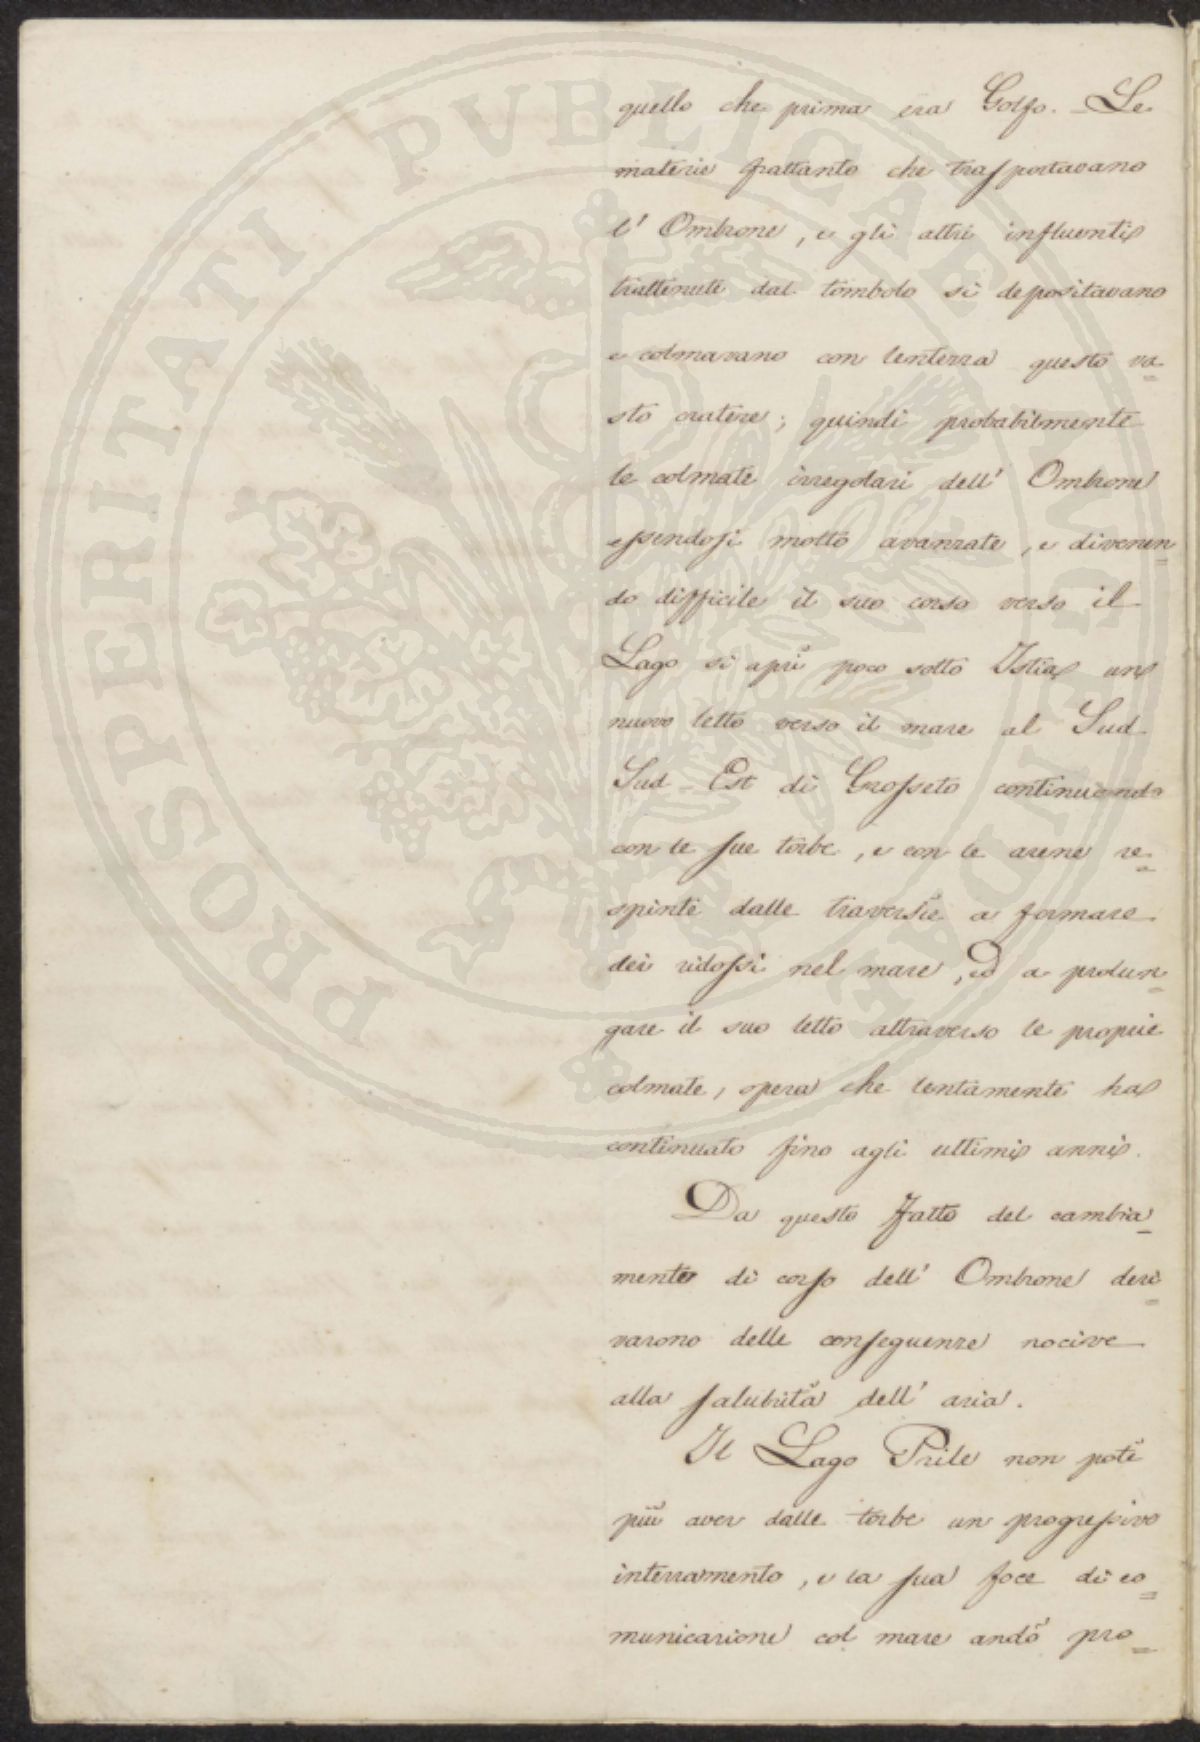 quello che prima era Golfo. Le
materie frattanto che trasportavano
l' Ombrone, e gli altri influenti
trattenute dal tombolo si depositavano
e colmavano con lentezza questo va=
sto cratere; quindi probabilmente
le colmate irregolari dell' Ombrone
essendosi molto avanzate, e divenen=
do difficile il suo corso verso il
Lago si aprì poco sotto Istia un
nuovo letto verso il mare al Sud
Sud-Est di Grosseto continuando
con le sue torbe, e con le arene re=
spinte dalle traversie a formare
dei ridossi nel mare, ed a prolun=
gare il suo letto attraverso le proprie
colmate, opera che lentamente ha
continuato fino agli ultimi anni.
Da questo fatto del cambia=
mento di corso dell' Ombrone deri=
varono delle conseguenze nocive
alla salubrità dell' aria.
Il Lago Prile non potè
più aver dalle torbe un progressivo
interramento, e la sua foce di co=
municazione col mare andò pro=
PROSPERITATI PVBLICAE AVGENDAE